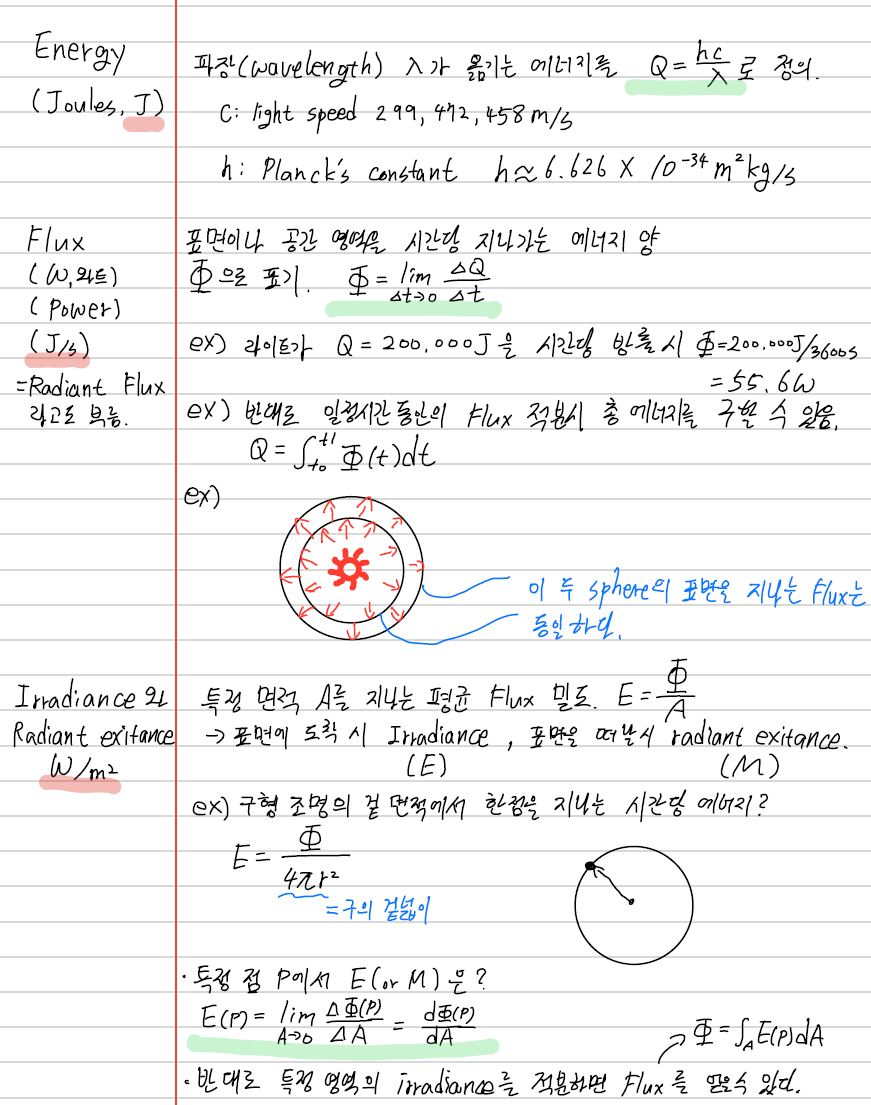 Energy
(Joules, J)
파장(wavelength) λ가 옮기는 에너지를 Q = hc/λ 로 정의.
C: light speed 299,472,458m/s
h: Planck's constant h≈6.626 X 10^-34 m²kg/s
Flux
(W,와트)
(Power)
(J/s)
=Radiant Flux
라고도 부름.
표면이나 공간 영역을 시간당 지나가는 에너지 양
Φ으로 표기. Φ = lim Δt→0 ΔQ/Δt
ex) 라이트가 Q = 200,000J 을 시간당 방출 시 Φ=200,000J/3600s
= 55.6W
ex) 반대로 일정시간 동안의 Flux 적분시 총 에너지를 구할 수 있음.
Q = ∫t0 t1 Φ(t)dt
ex)
이 두 sphere의 표면을 지나는 Flux는
동일 하다.
Irradiance 와
Radiant exitance
W/m²
특정 면적 A를 지나는 평균 Flux 밀도. E = Φ/A
→ 표면에 도착 시 Irradiance , 표면을 떠날시 radiant exitance.
(E) (M)
ex) 구형 조명의 겉 면적에서 한점을 지나는 시간당 에너지?
E = Φ/4πr²
=구의 겉넓이
· 특정 점 P에서 E(or M) 은?
E(P) = lim A→0 ΔΦ(P)/ΔA = dΦ(P)/dA
→ Φ = ∫A E(P)dA
· 반대로 특정 영역의 irradiance를 적분하면 Flux를 얻을수 있다.